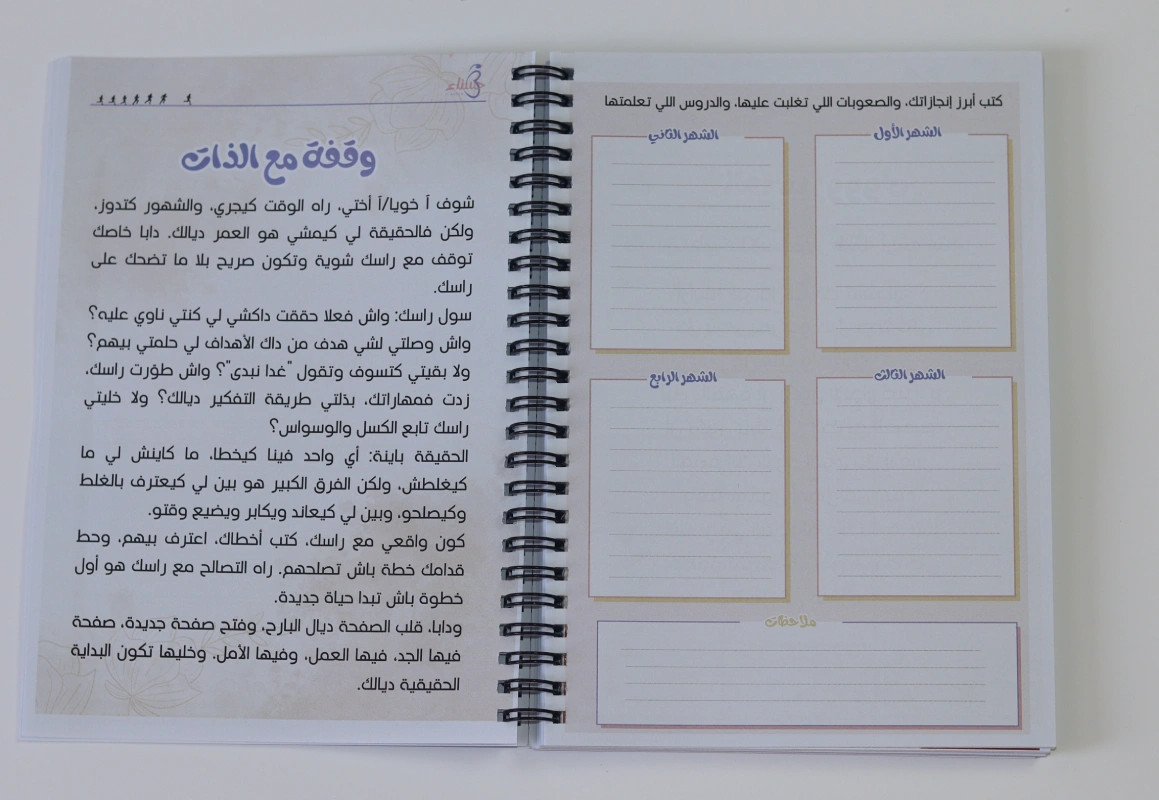 وقفة مع الذات
شوف آ خويا/آ أختي، راه الوقت كيجري، والشهور كتدوز،
ولكن فالحقيقة لي كيمشي هو العمر ديالك. دابا خاصك
توقف مع راسك شوية وتكون صريح بلا ما تضحك على
راسك.
سول راسك: واش فعلا حققت داكشي لي كنتي ناوي عليه؟
واش وصلتي لشي هدف من داك الأهداف لي حلمتي بيهم؟
ولا بقيتي كتسوف وتقول "غدا نبدى"؟ واش طوّرت راسك،
زدت فمهاراتك، بدّلتي طريقة التفكير ديالك؟ ولا خليتي
راسك تابع الكسل والوسواس؟
الحقيقة باينة: أي واحد فينا كيخطا، ما كاينش لي ما
كيغلطش، ولكن الفرق الكبير هو بين لي كيعترف بالغلط
وكيصلحو، وبين لي كيعاند ويكابر ويضيع وقتو.
كون واقعي مع راسك، كتب أخطاك، اعترف بيهم، وحط
قدامك خطة باش تصلحهم. راه التصالح مع راسك هو أول
خطوة باش تبدا حياة جديدة.
ودابا، قلب الصفحة ديال البارح، وفتح صفحة جديدة، صفحة
فيها الجد، فيها العمل، وفيها الأمل. وخليها تكون البداية
الحقيقية ديالك.
كتب أبرز إنجازاتك، والصعوبات اللي تغلبت عليها، والدروس اللي تعلمتها
الشهر الأول
الشهر الثاني
الشهر الثالث
الشهر الرابع
ملاحظات